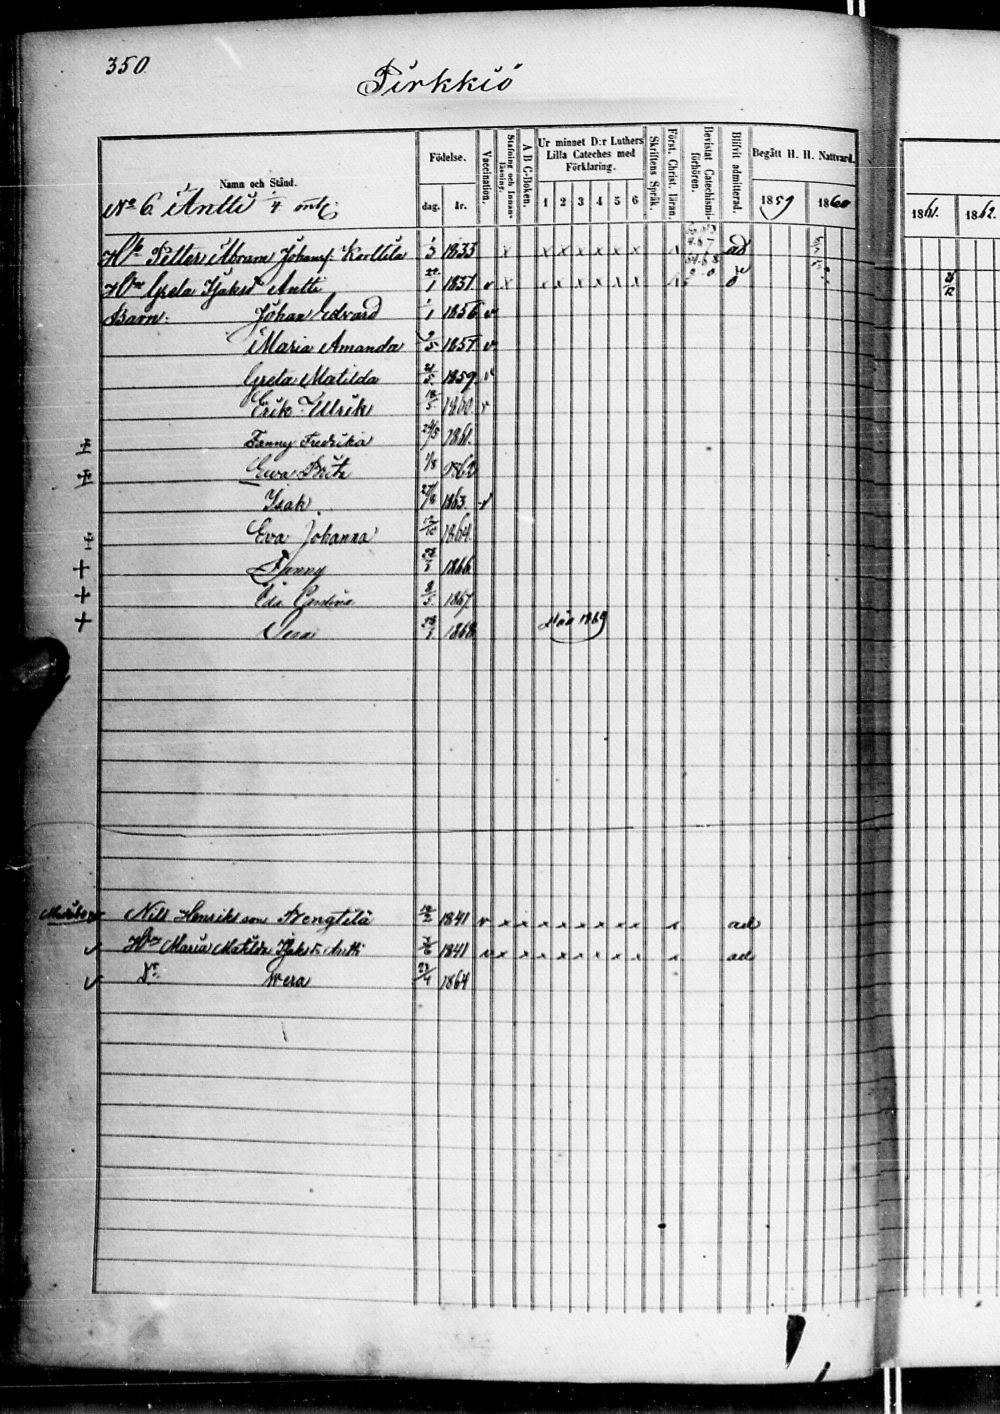 350
Pirkkiö
Namn och Stånd.
Födelse.
dag.
år.
Vaccination.
Stafning och Innanläsning.
A B C-Boken.
Ur minnet D:r Luthers Lilla Cateches med Förklaring.
1 2 3 4 5 6
Skriftens Språk.
Först. Christ. läran.
Bevistat Catechismi-förhören.
Blifvit admitterad.
Begått H. H. Nattvard.
1859 1860
1861. 1862.
No 6. Antti 1/4 mtl:
Petter Abram Johansf. Korttila 1833 x x x x x x x ad
Greta Antti 1/1 v x x x x x x x
Barn: Johan Edvard 1/1 1856 v
Maria Amanda 1857 v
Greta Matilda 21/5 1859 v
Erik Ulrik 18/5 1860 v
Fanny Fredrika 24/5 1861.
Ewa 1/8 1862
Isak 27/8 1863. v
Eva Johanna 1864.
+ Fanny 1866
+ Ida 1867
+ Vera 1868 1869
Nill Henrikson Prengtilä 1841 v x x x x x x x x x ad
v Maria Matilda Antti 1841 v x x x x x x x x x ad
v Wera 1864